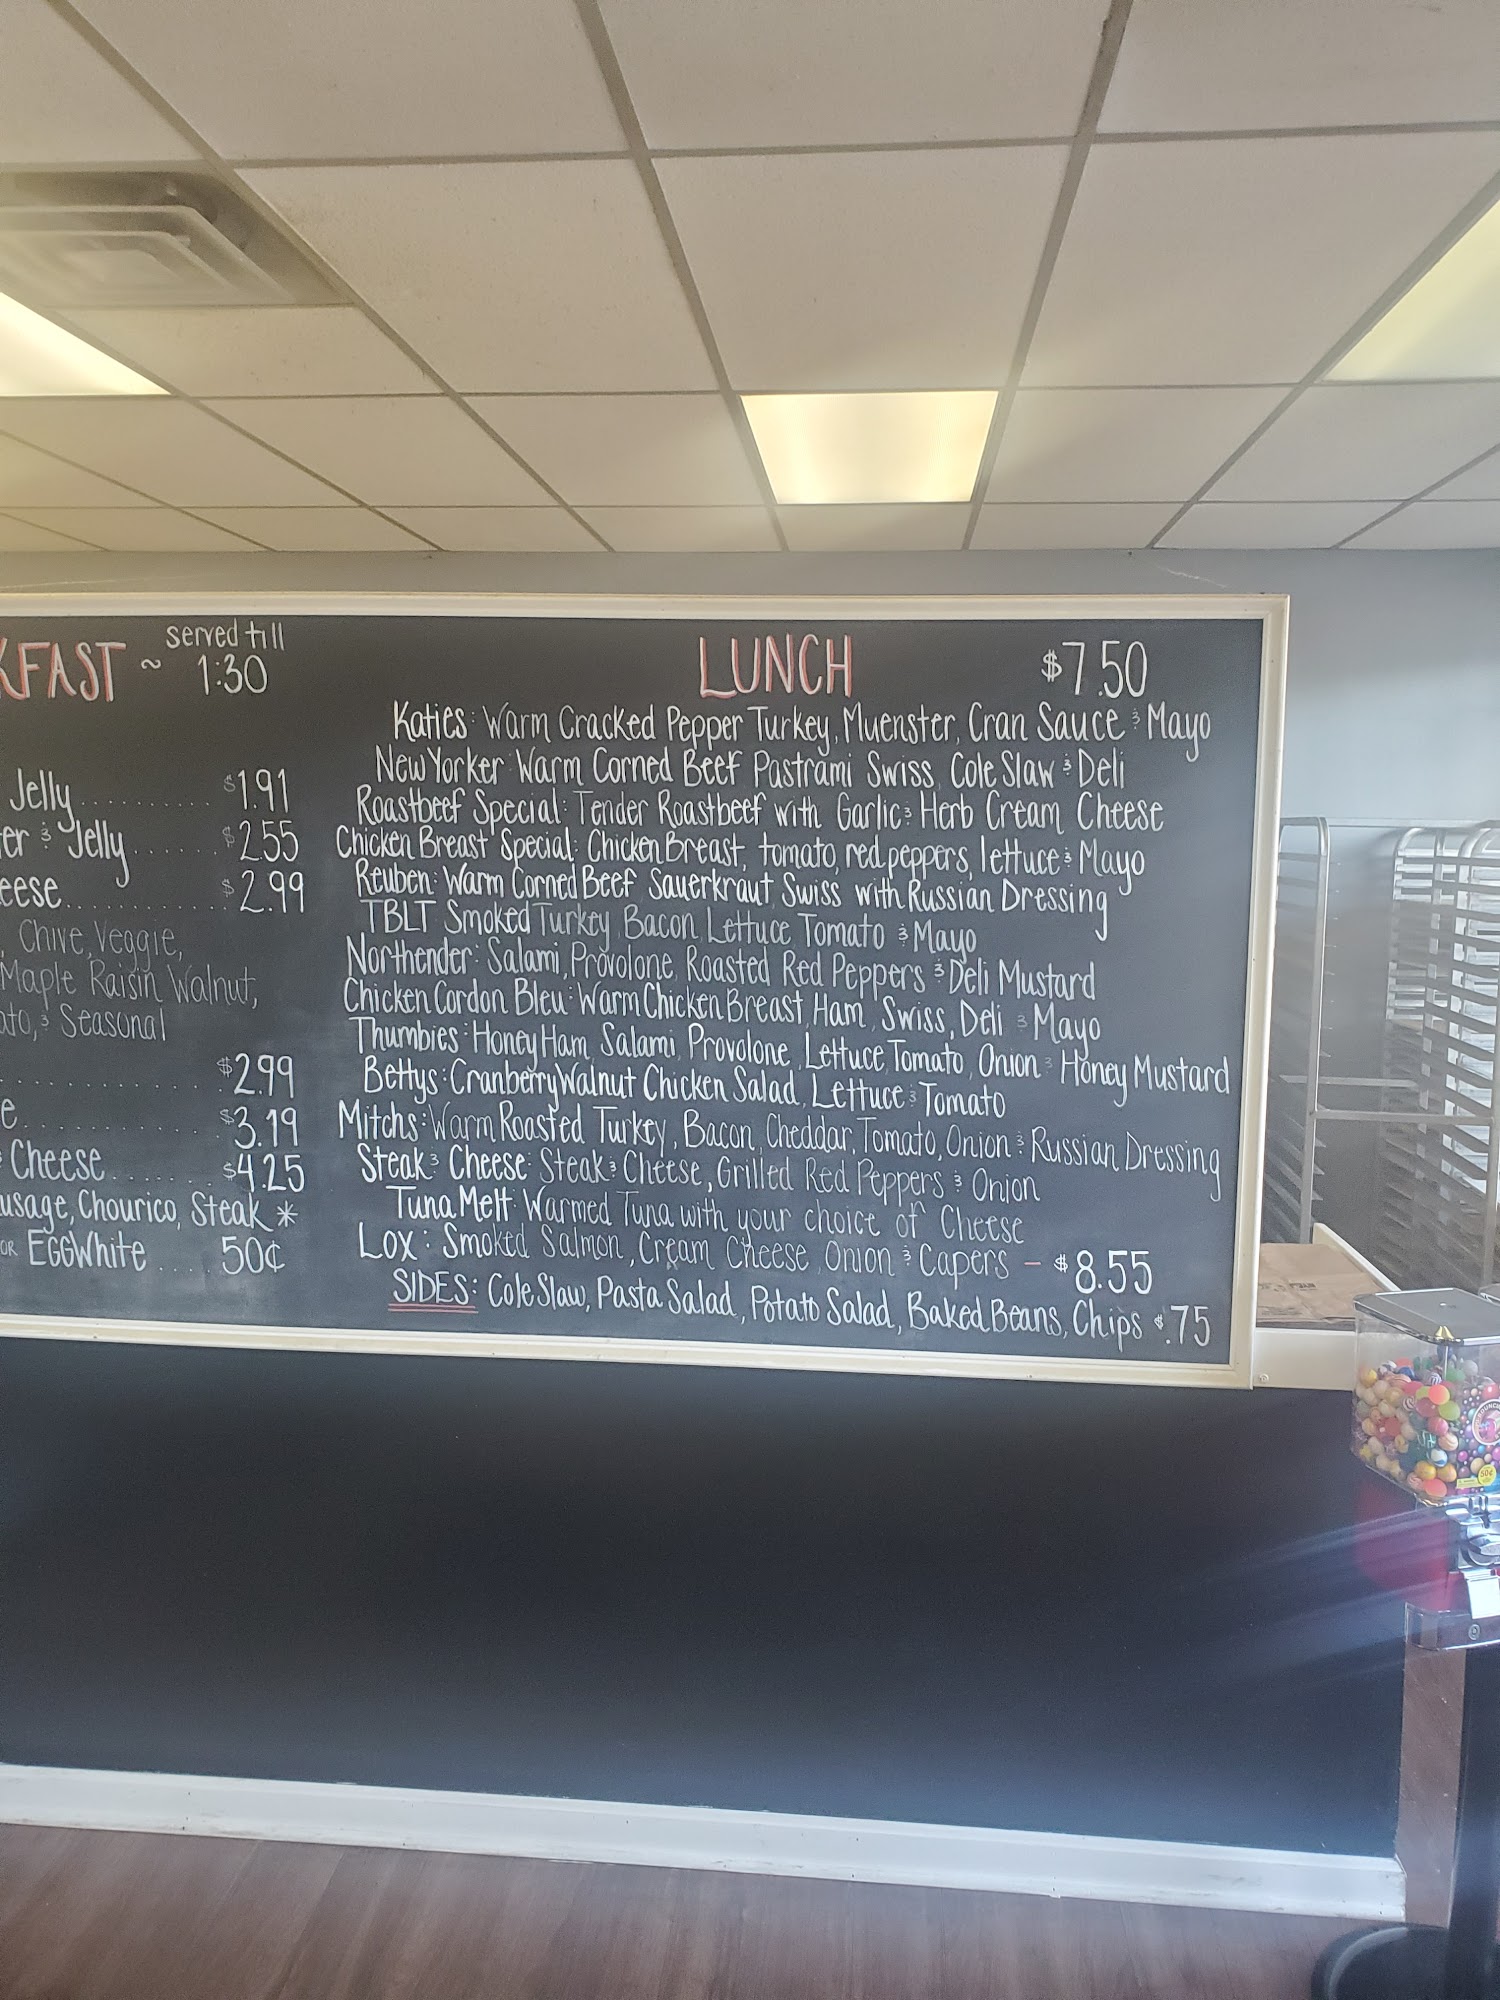 KFAST ~ served till
1:30
Jelly .......... $1.91
er & Jelly ....... $2.55
eese ............ $2.99
Chive, Veggie,
Maple Raisin Walnut,
ato, & Seasonal
............ $2.99
e ............ $3.19
& Cheese ........ $4.25
usage, Chourico, Steak *
OR EGGWhite .... 50¢
LUNCH $7.50
Katies: Warm Cracked Pepper Turkey, Muenster, Cran Sauce & Mayo
New Yorker: Warm Corned Beef Pastrami Swiss, Cole Slaw & Deli
Roastbeef Special: Tender Roastbeef with Garlic & Herb Cream Cheese
Chicken Breast Special: Chicken Breast, tomato, red peppers, lettuce & Mayo
Reuben: Warm Corned Beef Sauerkraut Swiss with Russian Dressing
TBLT Smoked Turkey Bacon Lettuce Tomato & Mayo
Northender: Salami, Provolone, Roasted Red Peppers & Deli Mustard
Chicken Cordon Bleu: Warm Chicken Breast, Ham, Swiss, Deli & Mayo
Thumbies: Honey Ham, Salami, Provolone, Lettuce, Tomato, Onion & Honey Mustard
Bettys: Cranberry Walnut Chicken Salad, Lettuce & Tomato
Mitchs: Warm Roasted Turkey, Bacon, Cheddar, Tomato, Onion & Russian Dressing
Steak & Cheese: Steak & Cheese, Grilled Red Peppers & Onion
Tuna Melt: Warmed Tuna with your choice of Cheese
Lox: Smoked Salmon, Cream Cheese, Onion & Capers - $8.55
SIDES: Cole Slaw, Pasta Salad, Potato Salad, Baked Beans, Chips $.75
50¢